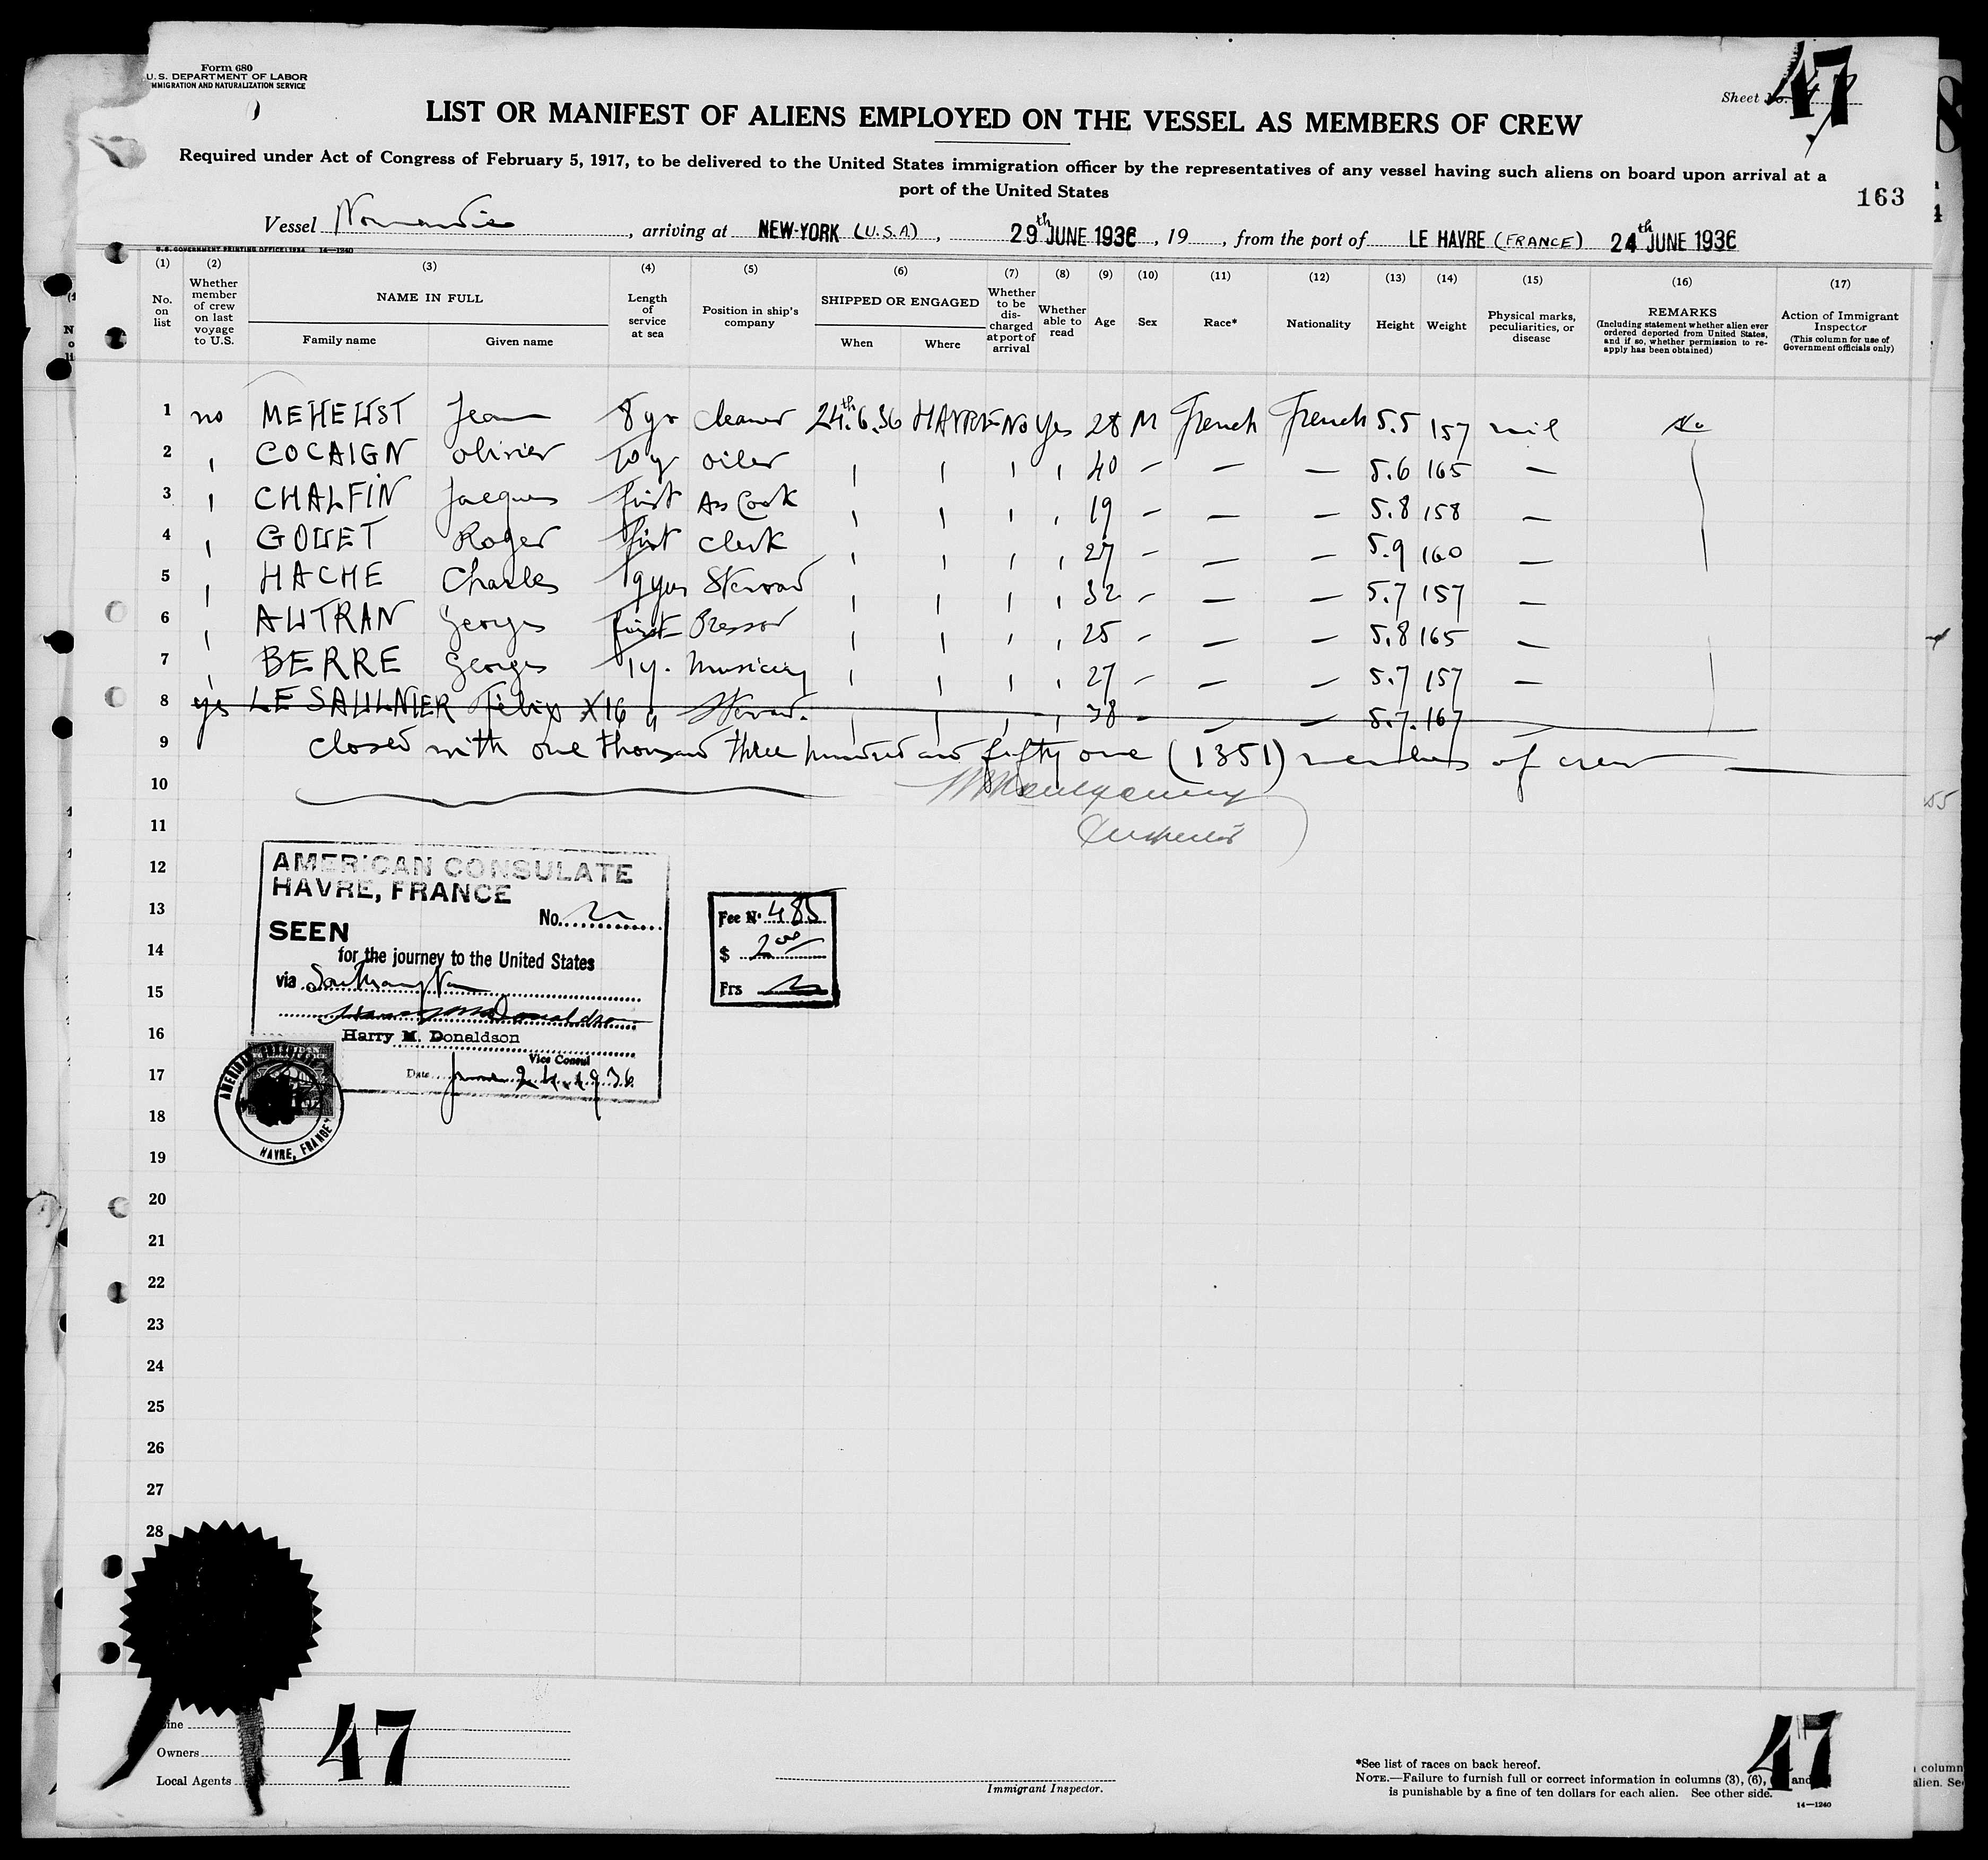 Form 680
U.S. DEPARTMENT OF LABOR
IMMIGRATION AND NATURALIZATION SERVICE
Sheet No. 47
LIST OR MANIFEST OF ALIENS EMPLOYED ON THE VESSEL AS MEMBERS OF CREW
Required under Act of Congress of February 5, 1917, to be delivered to the United States immigration officer by the representatives of any vessel having such aliens on board upon arrival at a
port of the United States
163
Vessel Normandie, arriving at NEW-YORK (U.S.A), 29th JUNE 1936, 19, from the port of LE HAVRE (FRANCE) 24th JUNE 1936
U.S. GOVERNMENT PRINTING OFFICE: 1934 14-1240
(1) No. on list
(2) Whether member of crew on last voyage to U.S.
(3) NAME IN FULL Family name Given name
(4) Length of service at sea
(5) Position in ship's company
(6) SHIPPED OR ENGAGED When Where
(7) Whether to be discharged at port of arrival
(8) Whether able to read
(9) Age
(10) Sex
(11) Race*
(12) Nationality
(13) Height
(14) Weight
(15) Physical marks, peculiarities, or disease
(16) REMARKS (Including statement whether alien ever ordered deported from United States, and if so, whether permission to re-apply has been obtained)
(17) Action of Immigrant Inspector (This column for use of Government officials only)
1 no MEHEUST Jean 8 yr cleaner 24th.6.36 HAVRE No Yes 28 M French French 5.5 157 nil No
2 COCAIGN Olivier 10 y oiler 40 5.6 165
3 CHALFIN Jacques first As Cook 19 5.8 158
4 GOUET Roger first clerk 27 5.9 160
5 HACHE Charles 19 yrs Steward 32 5.7 157
6 AUTRAN Georges first Pressor 25 5.8 165
7 BERRE Georges 1 y. Musician 27 5.7 157
8 yes LE SAULNIER Félix X 16 y Steward. 38 5.7. 167
9 closed with one thousand three hundred and fifty one (1351) members of crew
10 Montgomery
11 Inspector
12
13
14
15
16
17
18
19
20
21
22
23
24
25
26
27
28
AMERICAN CONSULATE
HAVRE, FRANCE
No.
SEEN
for the journey to the United States
via Southampton
Harry M. Donaldson
Harry M. Donaldson
Vice Consul
Date June 24, 1936
Fee No. 485
$ 2.00
Frs
HAVRE, FRANCE
Line
Owners
Local Agents
47
Immigrant Inspector.
*See list of races on back hereof.
NOTE.—Failure to furnish full or correct information in columns (3), (6), and
is punishable by a fine of ten dollars for each alien. See other side.
14-1240
47